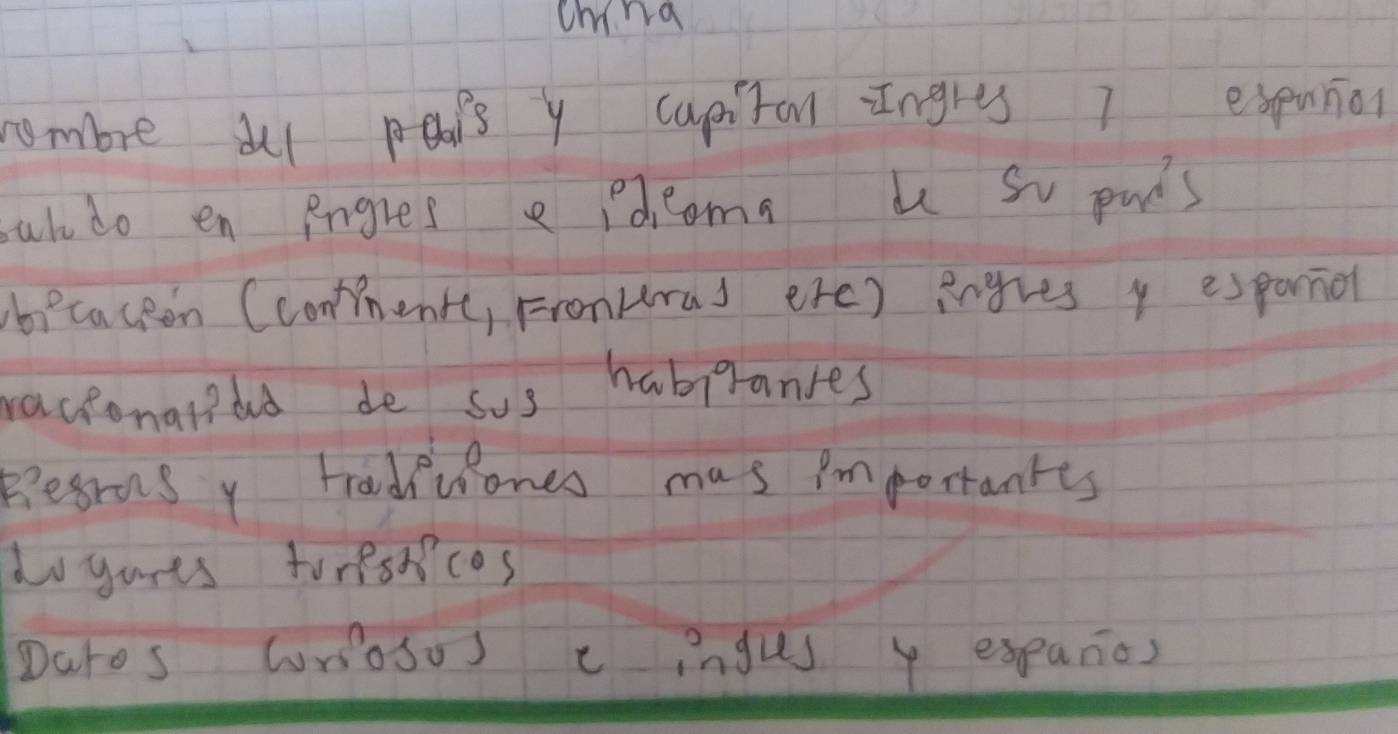 China
nombre del país y capital Ingles y español
saludo en ingles e idioma de su país
ubicación (continente, Fronteras etc) ingles y español
nacionalidad de sus habitantes
Fiestas y tradiciones mas importantes
Lugares turisticos
Datos curiosos e ingles y español